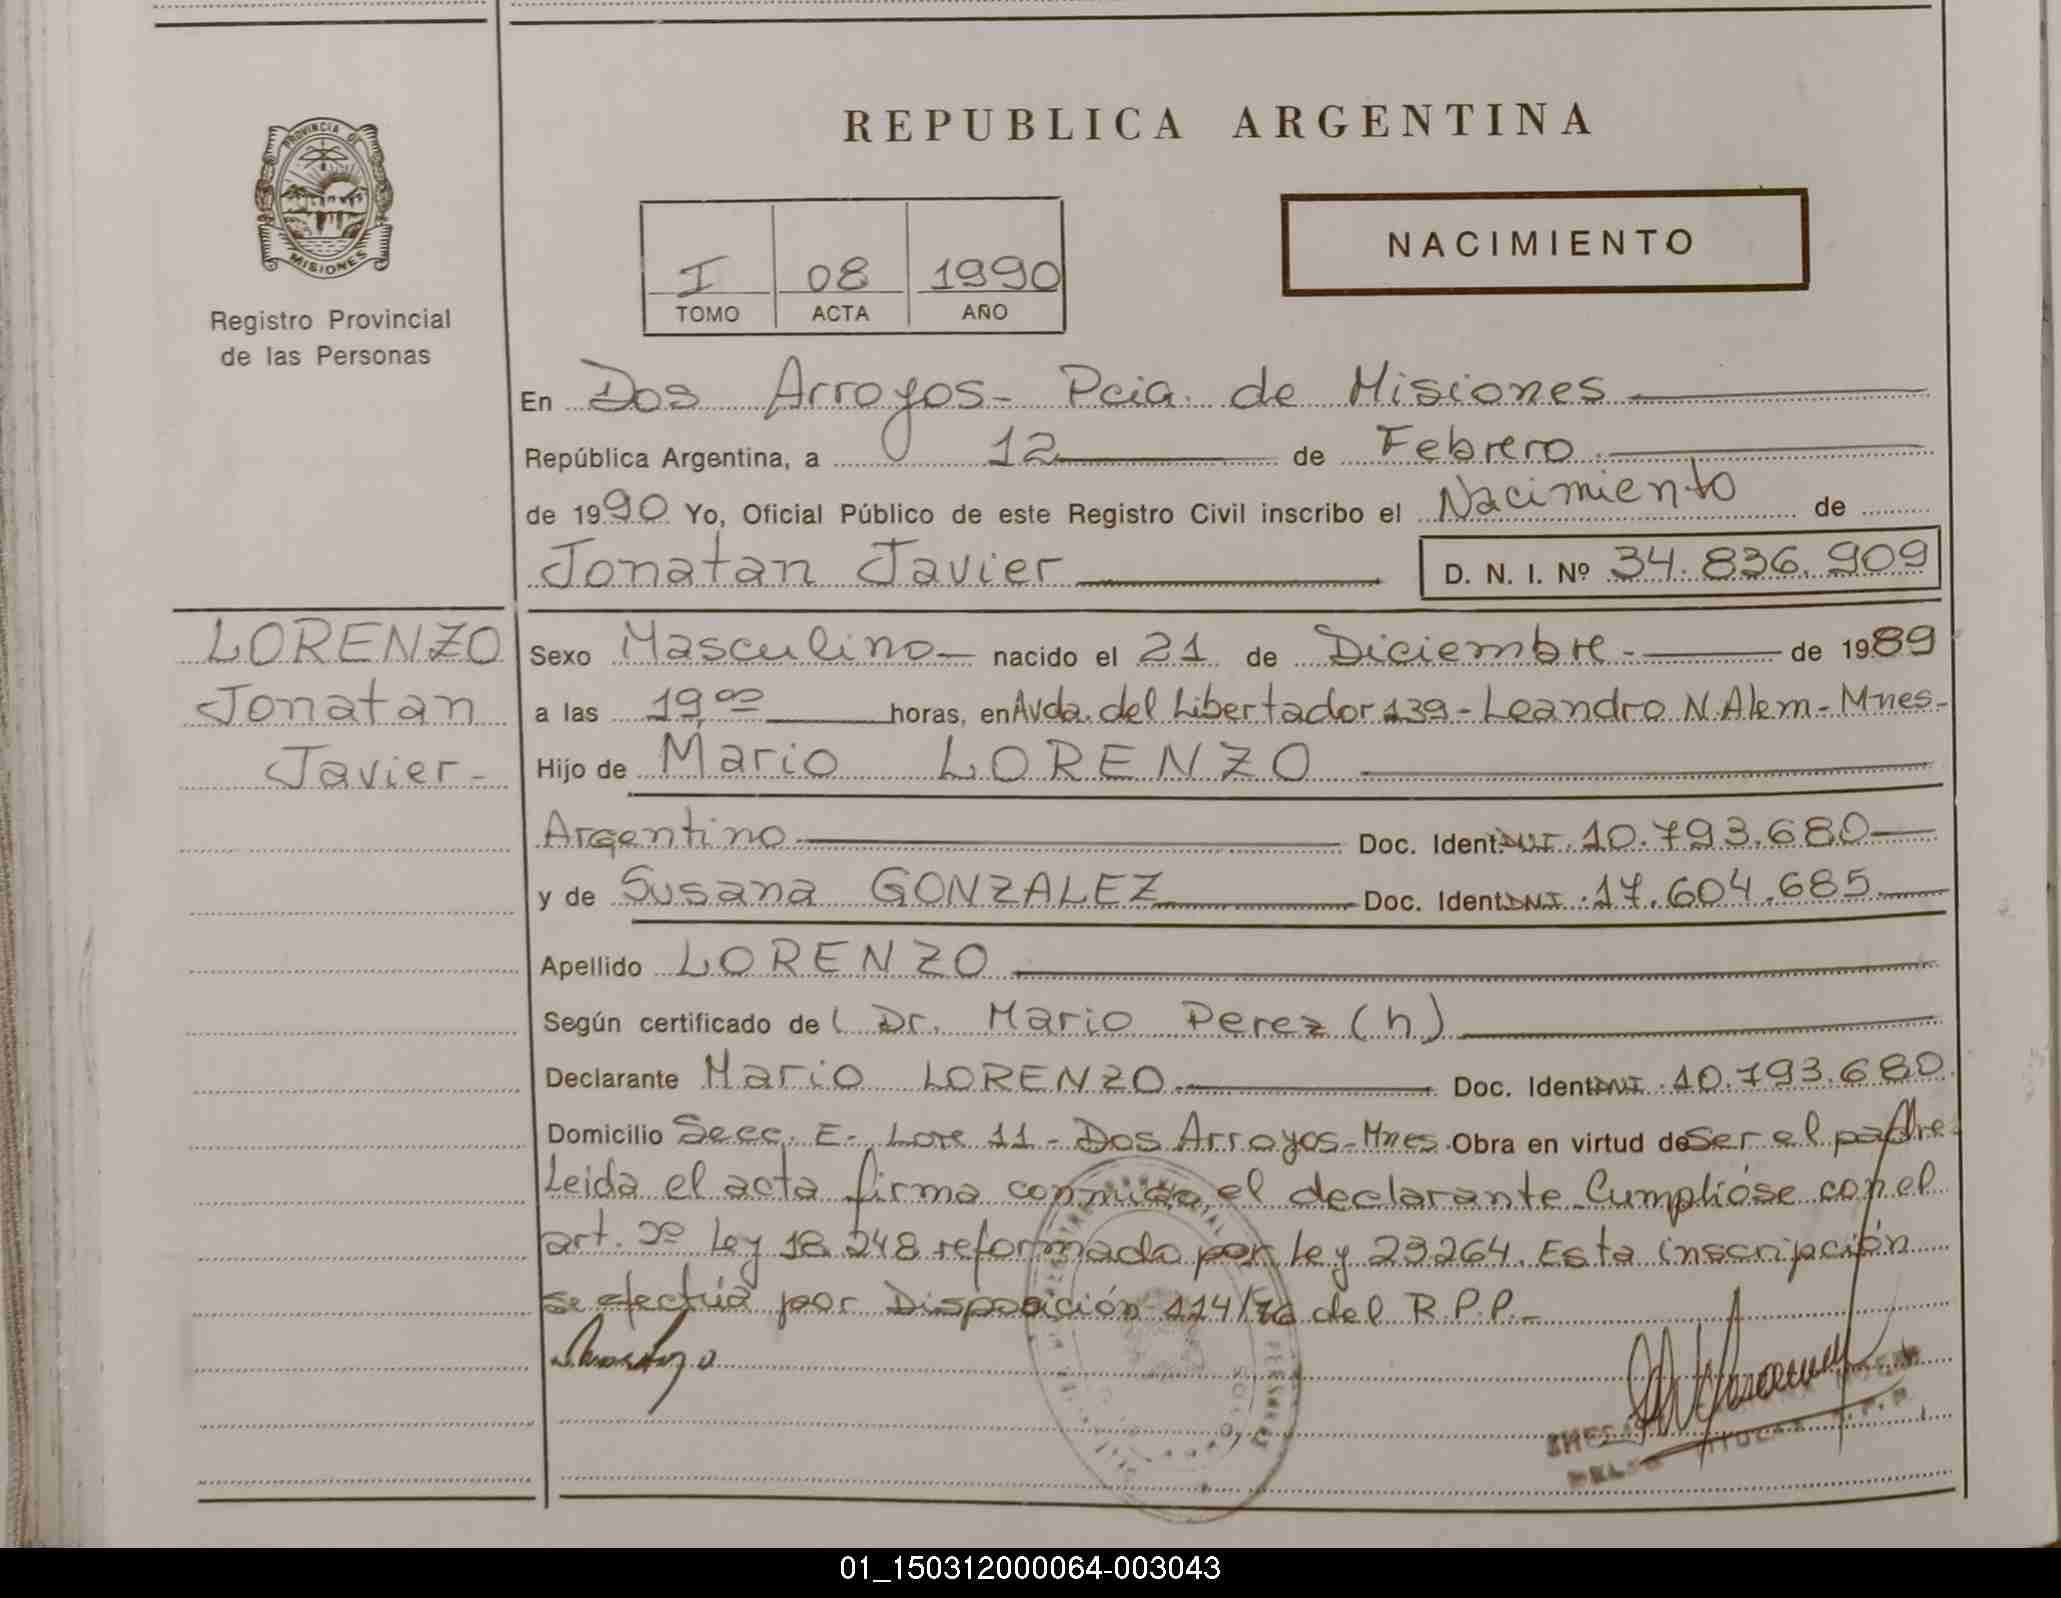 PROVINCIA DE
MISIONES
Registro Provincial
de las Personas
REPUBLICA ARGENTINA
I 08 1990
TOMO ACTA AÑO
NACIMIENTO
En Dos Arroyos - Pcia. de Misiones
República Argentina, a 12 de Febrero
de 1990 Yo, Oficial Público de este Registro Civil inscribo el Nacimiento de
Jonatan Javier D. N. I. Nº 34.836.909
LORENZO
Jonatan
Javier -
Sexo Masculino - nacido el 21 de Diciembre - de 1989
a las 19,00 horas, en Avda. del Libertador 139 - Leandro N. Alem - Mnes -
Hijo de Mario LORENZO
Argentino Doc. Ident. DNI. 10.793.680
y de Susana GONZALEZ Doc. Ident. DNI. 17.604.685
Apellido LORENZO
Según certificado del Dr. Mario Perez (h)
Declarante Mario LORENZO Doc. Ident. DNI. 10.793.680
Domicilio Secc. E - Lote 11 - Dos Arroyos - Mnes. Obra en virtud de ser el padre
Leida el acta firma conmigo el declarante Cumplióse con el
art. 2º Ley 18.248 reformado por Ley 23264. Esta inscripción
se efectúa por Disposición 114/76 del R.P.P. -
01_150312000064-003043